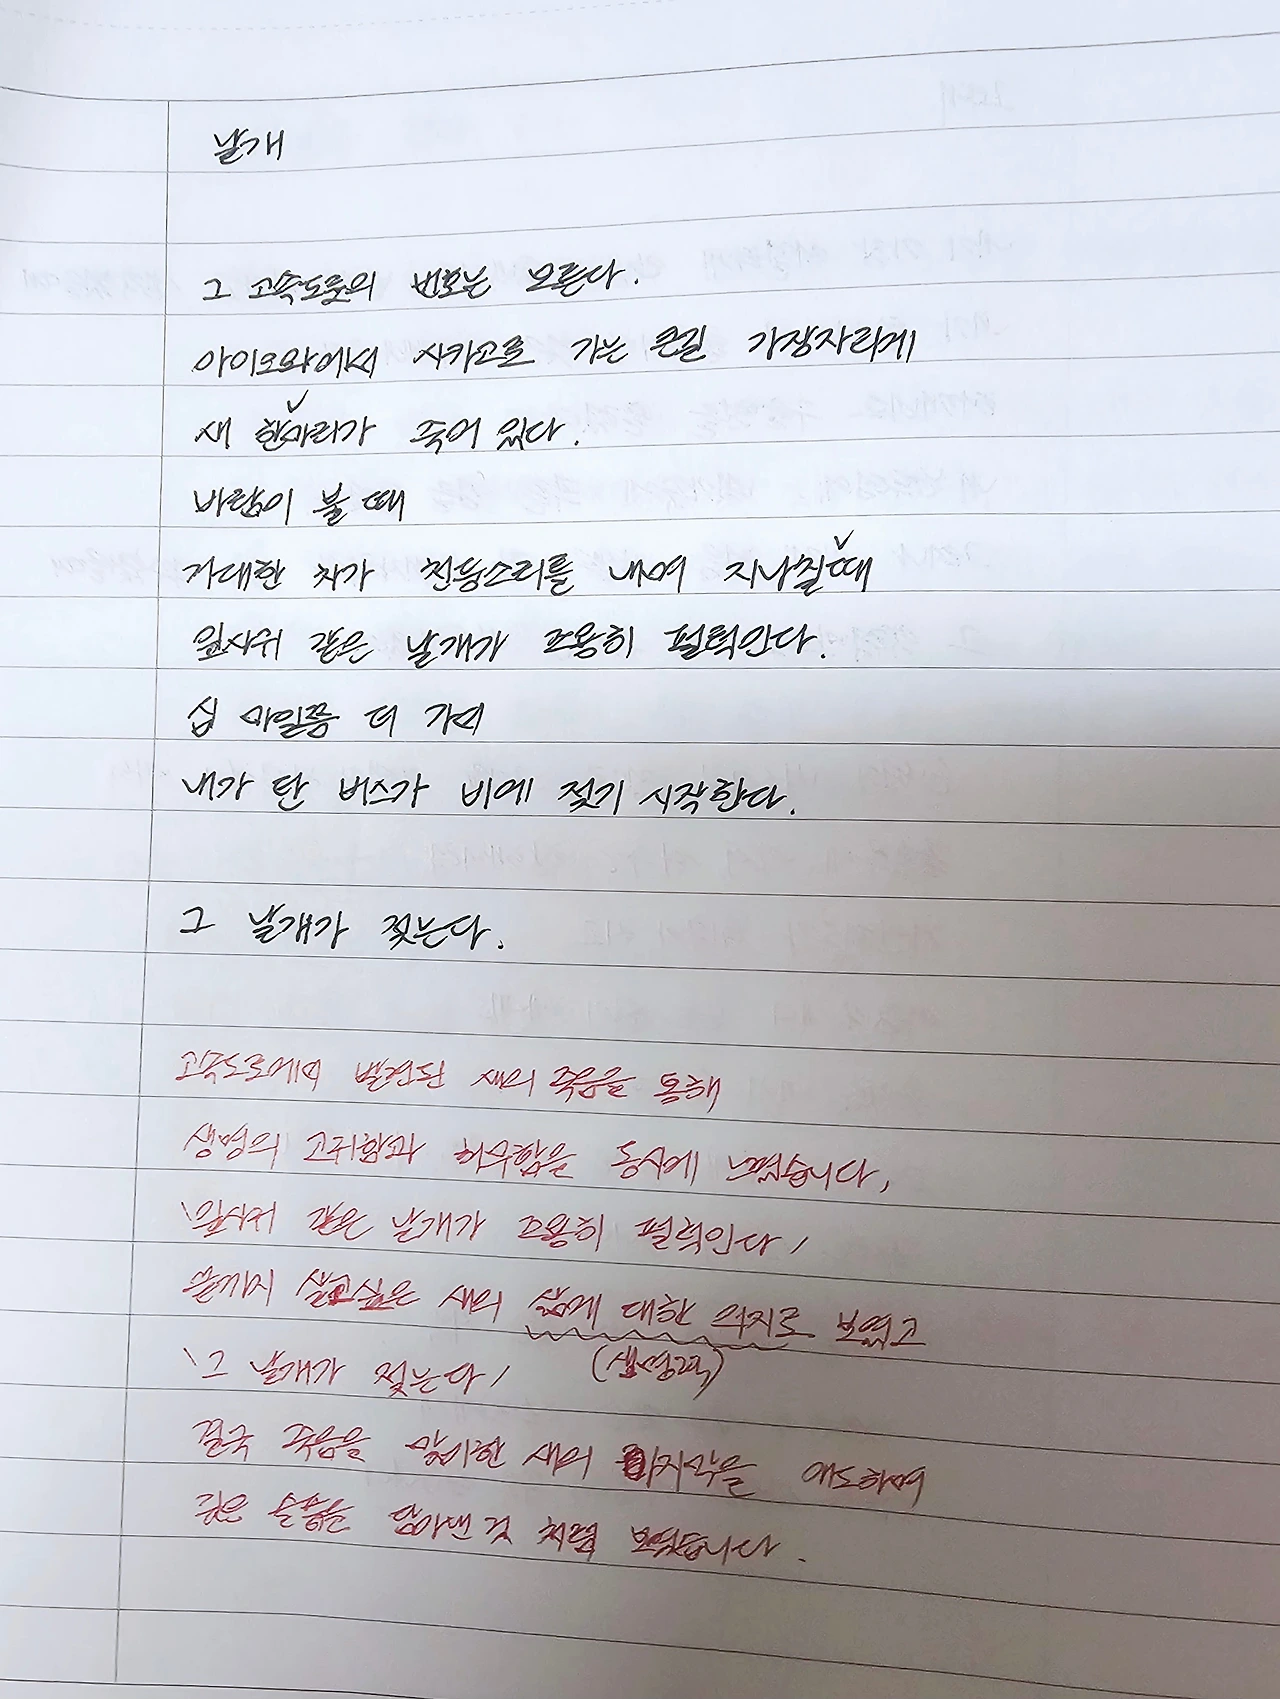 날개
그 고속도로의 번호는 모른다.
아이오와에서 시카고로 가는 큰길 가장자리에
새 한마리가 죽어 있다.
바람이 불 때
거대한 차가 천둥소리를 내며 지나칠때
잎사귀 같은 날개가 조용히 펄럭인다.
십 마일쯤 더 가서
내가 탄 버스가 비에 젖기 시작한다.
그 날개가 젖는다.
고속도로에서 발견된 새의 죽음을 통해
생명의 고귀함과 허무함을 동시에 느꼈습니다,
'잎사귀 같은 날개가 조용히 펄럭인다'
끝까지 살고싶은 새의 삶에 대한 의지로 보였고
'그 날개가 젖는다' (생명력)
결국 죽음을 맞이한 새의 마지막을 애도하며
깊은 슬픔을 담아낸 것 처럼 보였습니다.